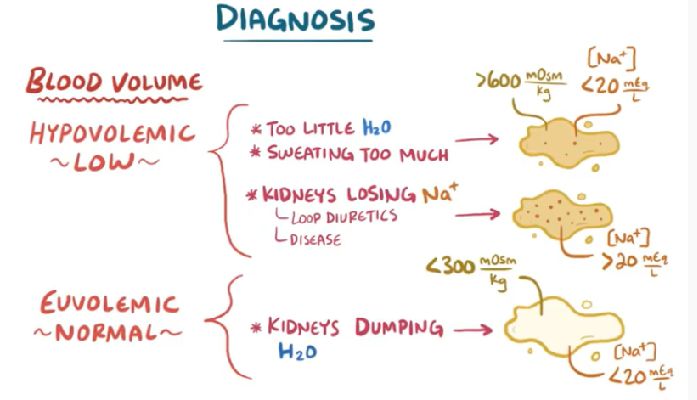 DIAGNOSIS
BLOOD VOLUME
HYPOVOLEMIC
~LOW~
* TOO LITTLE H₂O
* SWEATING TOO MUCH
>600 mOsm/kg
[Na⁺]
<20 mEq/L
* KIDNEYS LOSING Na⁺
LOOP DIURETICS
DISEASE
[Na⁺]
>20 mEq/L
EUVOLEMIC
~NORMAL~
* KIDNEYS DUMPING
H₂O
<300 mOsm/kg
[Na⁺]
<20 mEq/L